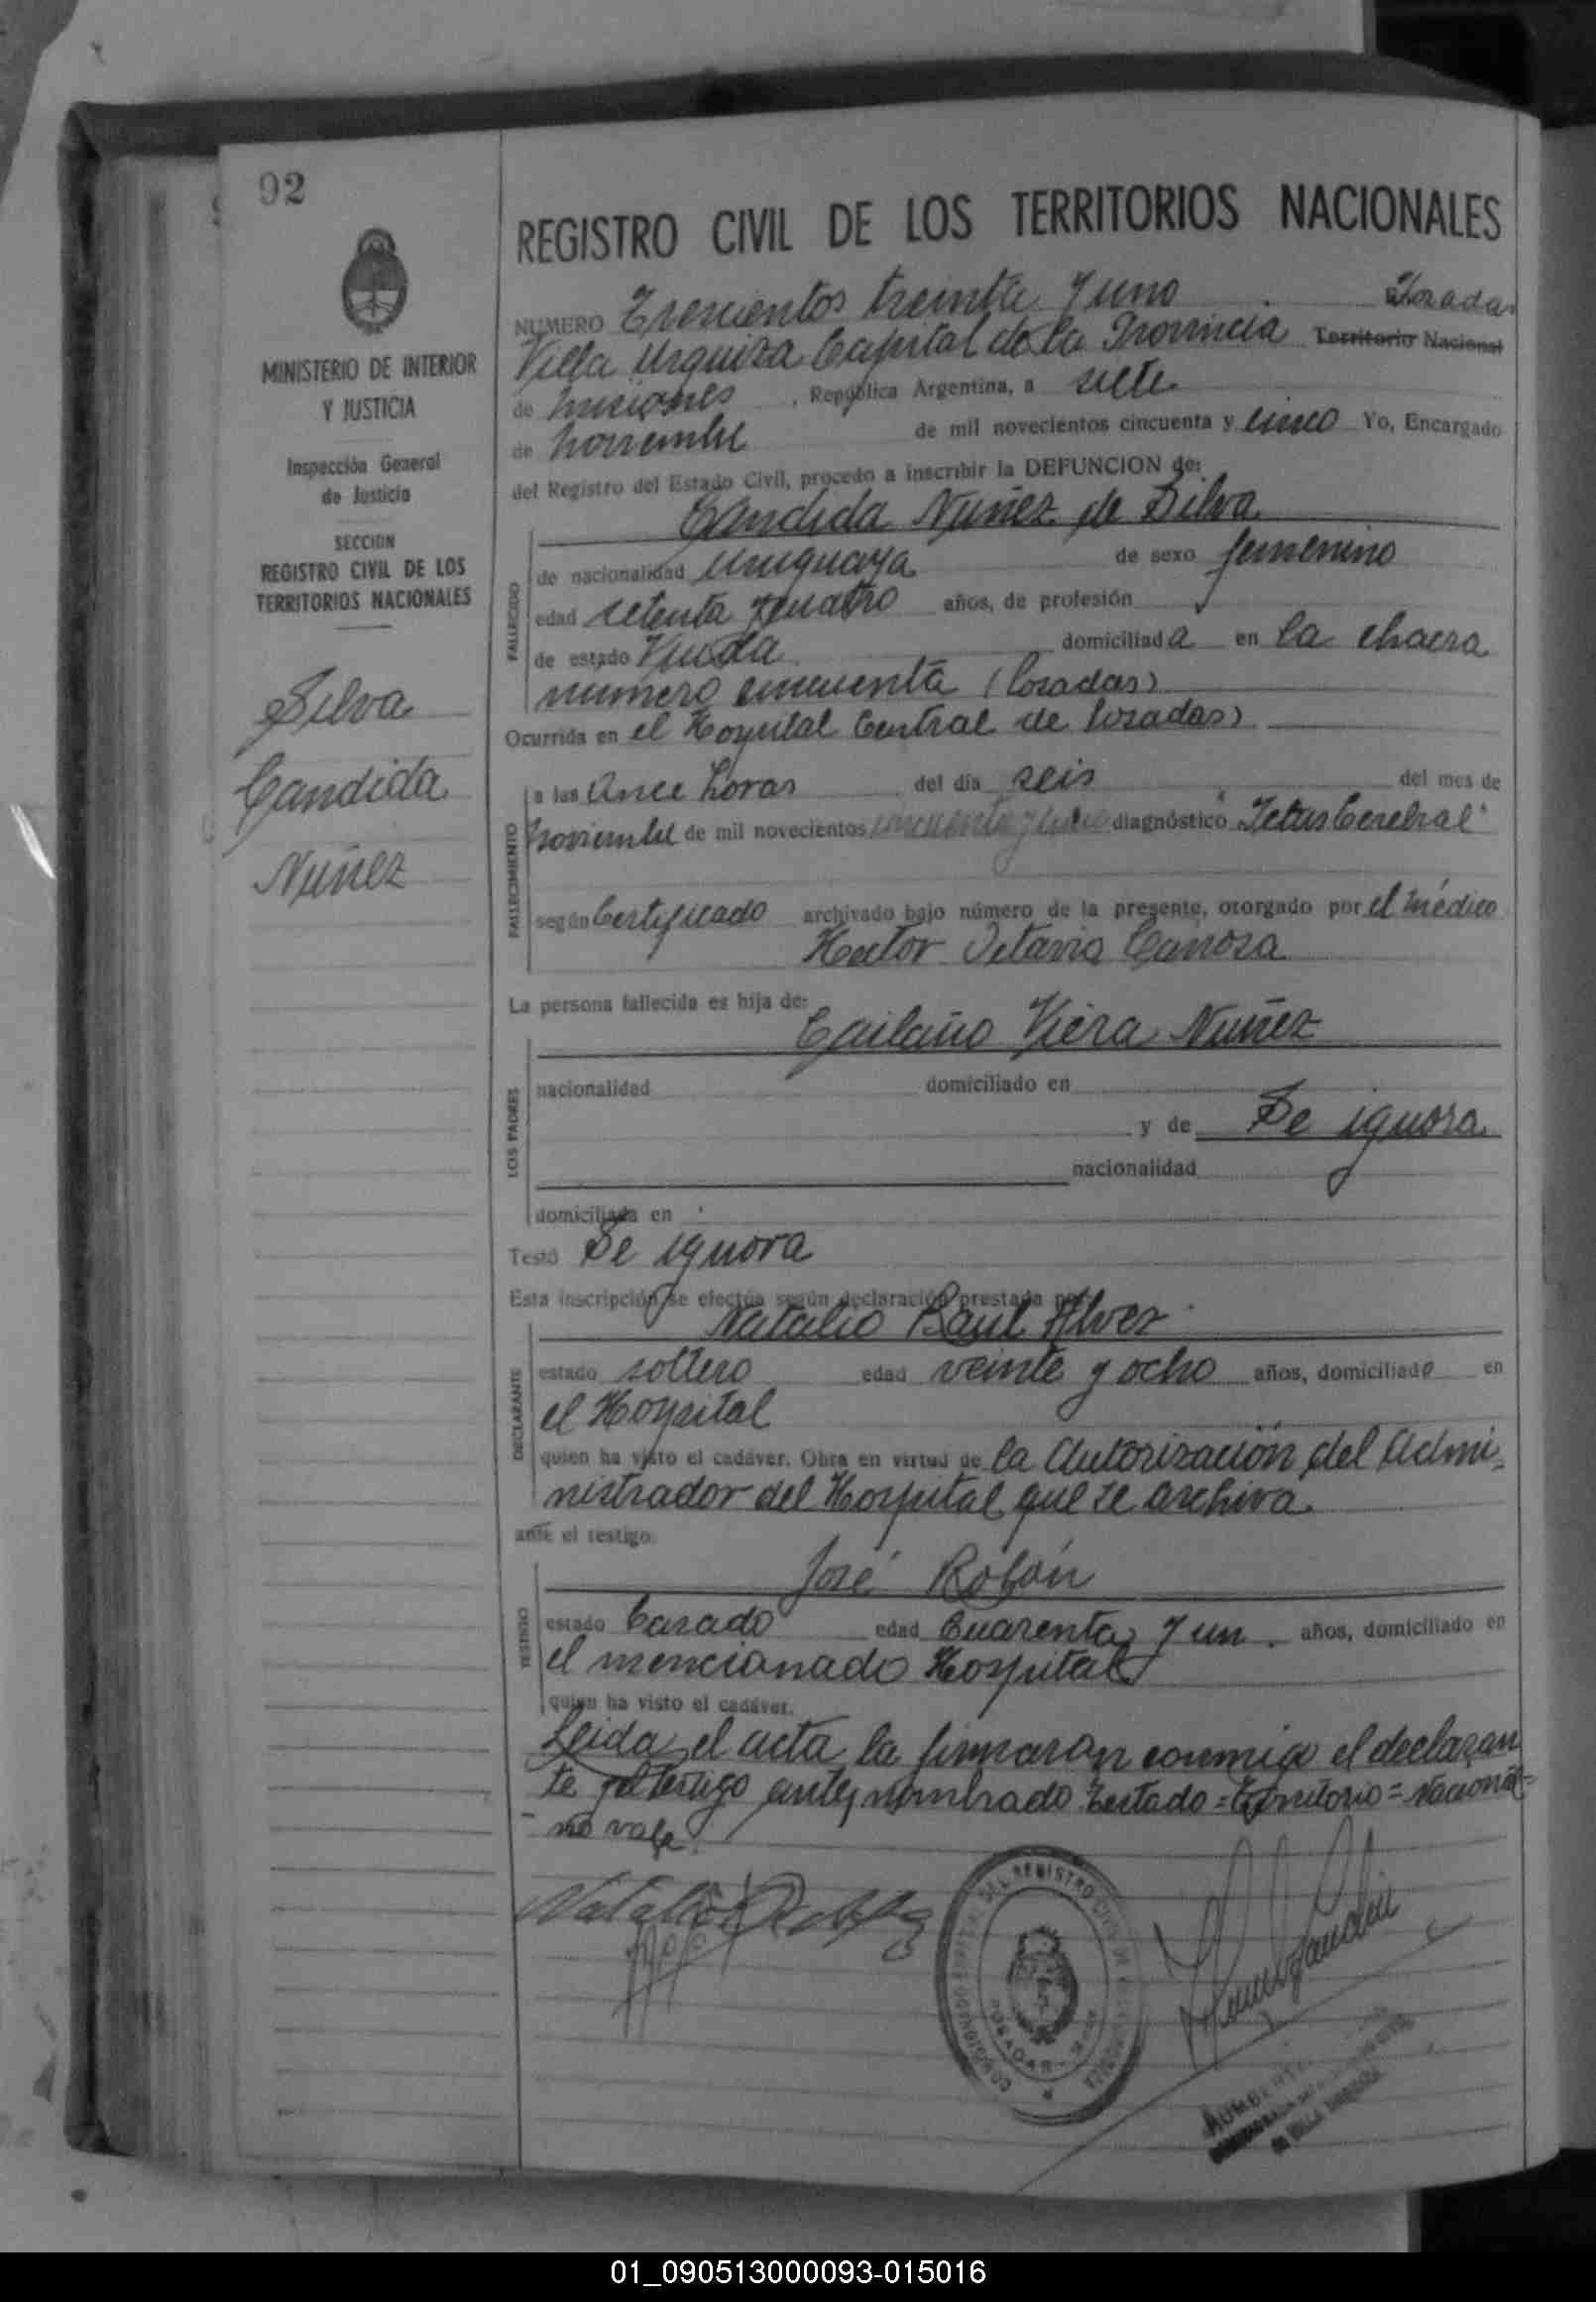 92
MINISTERIO DE INTERIOR
Y JUSTICIA
Inspección General
de Justicia
SECCION
REGISTRO CIVIL DE LOS
TERRITORIOS NACIONALES
Silva
Candida
Nuñez
REGISTRO CIVIL DE LOS TERRITORIOS NACIONALES
NUMERO Trescientos treinta y uno Posadas
Villa Urquiza Capital de la Provincia Territorio Nacional
de Misiones, República Argentina, a siete
de noviembre de mil novecientos cincuenta y cinco Yo, Encargado
del Registro del Estado Civil, procedo a inscribir la DEFUNCION de:
Candida Nuñez de Silva
FALLECIDO
de nacionalidad uruguaya de sexo femenino
edad setenta y cuatro años, de profesión
de estado Viuda domiciliada en la chacra
numero cincuenta (Posadas)
Ocurrida en el Hospital Central de Posadas)
FALLECIMIENTO
a las once horas del día seis del mes de
noviembre de mil novecientos cincuenta y cinco diagnóstico "Ictus Cerebral"
según Certificado archivado bajo número de la presente, otorgado por el médico
Hector Octavio Canosa
La persona fallecida es hija de:
LOS PADRES
Viera Nuñez
nacionalidad domiciliado en
y de Se ignora
nacionalidad
domiciliada en
Testó Se ignora
Esta inscripción se efectúa según declaración prestada por
DECLARANTE
Natalio Raul Alvez
estado soltero edad veinte y ocho años, domiciliado en
el Hospital
quien ha visto el cadáver. Obra en virtud de la autorización del Admi-
nistrador del Hospital que se archiva.
ante el testigo
TESTIGO
José Robán
estado Casado edad Cuarenta y un años, domiciliado en
el mencionado Hospital
quien ha visto el cadáver.
Leida el acta la firmaran conmigo el declaran
te y el testigo antes nombrado Testado=Territorio=Nacional=
no vale.
01_090513000093-015016